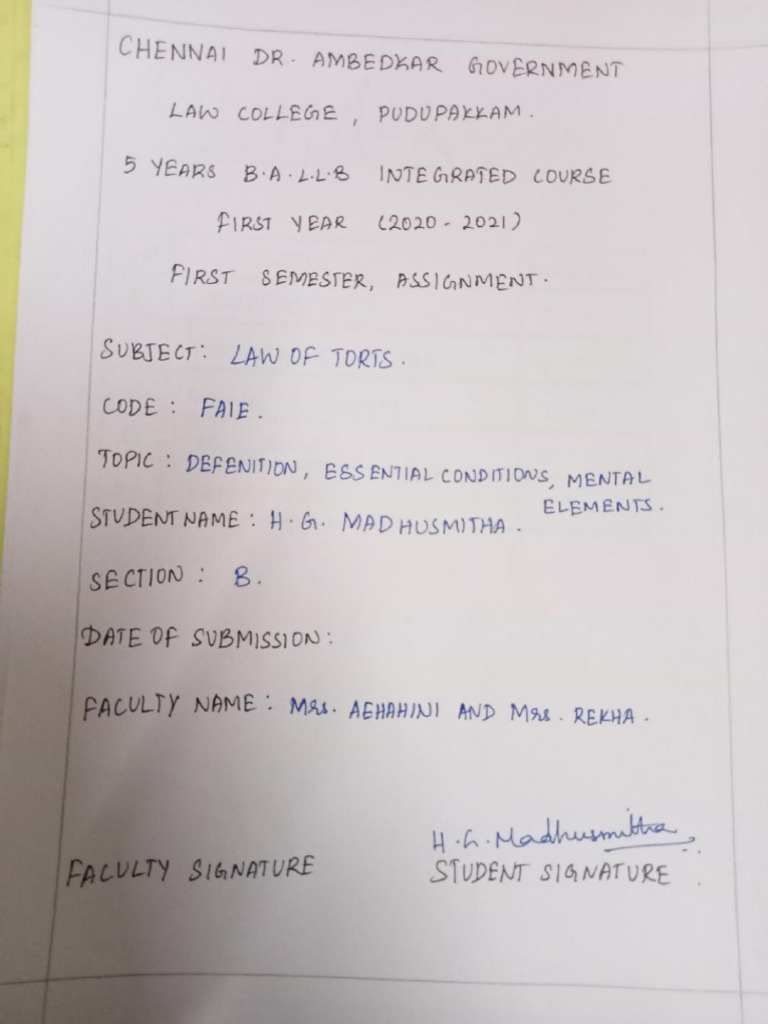 CHENNAI DR. AMBEDKAR GOVERNMENT
LAW COLLEGE, PUDUPAKKAM.
5 YEARS B.A.L.L.B INTEGRATED COURSE
FIRST YEAR (2020-2021)
FIRST SEMESTER, ASSIGNMENT.
SUBJECT: LAW OF TORTS.
CODE: FAIE.
TOPIC: DEFENITION, ESSENTIAL CONDITIONS, MENTAL
ELEMENTS.
STUDENT NAME: H.G. MADHUSMITHA.
SECTION: B.
DATE OF SUBMISSION:
FACULTY NAME: Mrs. AEHAHINI AND Mrs. REKHA.
H.G.Madhusmitha
FACULTY SIGNATURE STUDENT SIGNATURE